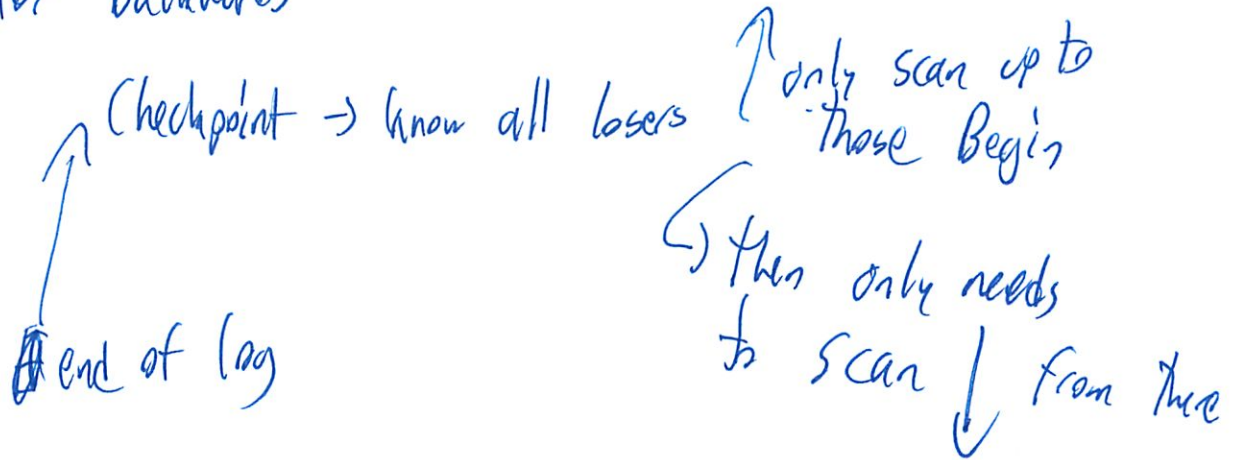 Checkpoint → know all losers ↑ only scan up to
those Begin
↳ then only needs
to scan ↓ from there
end of log